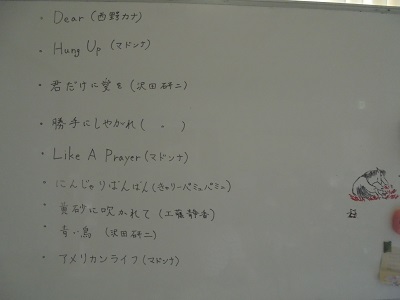 ・Dear (西野カナ)
・Hung Up (マドンナ)
・君だけに愛を (沢田研二)
・勝手にしやがれ ( 〃 )
・Like A Prayer (マドンナ)
・にんじゃりばんばん (きゃりーぱみゅぱみゅ)
・黄砂に吹かれて (工藤静香)
・青い鳥 (沢田研二)
・アメリカンライフ (マドンナ)